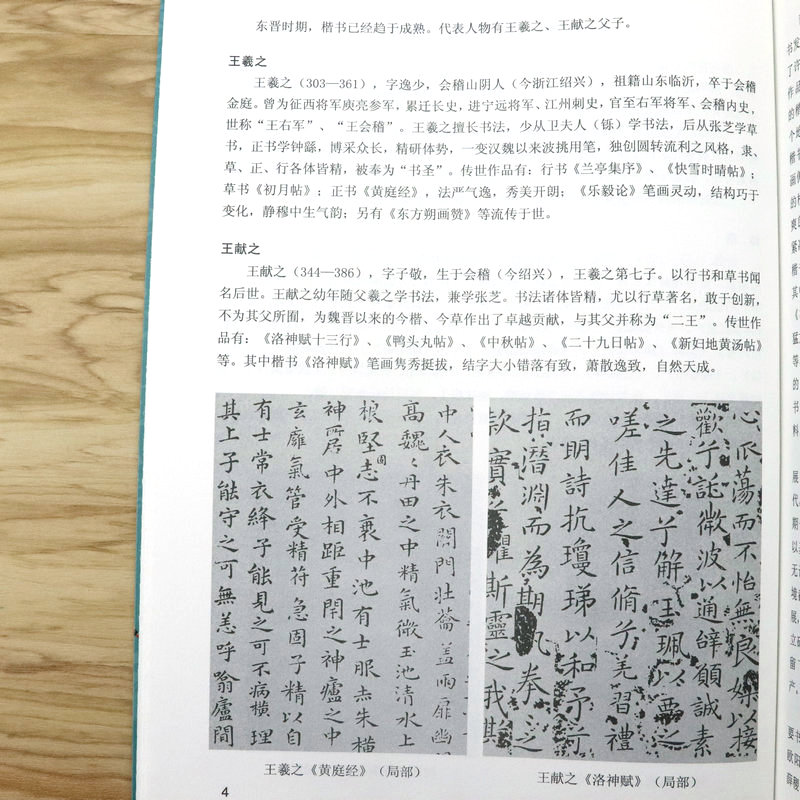 东晋时期，楷书已经趋于成熟。代表人物有王羲之、王献之父子。
王羲之
王羲之（303—361），字逸少，会稽山阴人（今浙江绍兴），祖籍山东临沂，卒于会稽
金庭。曾为征西将军庾亮参军，累迁长史，进宁远将军、江州刺史，官至右军将军、会稽内史，
世称“王右军”、“王会稽”。王羲之擅长书法，少从卫夫人（铄）学书法，后从张芝学草
书，正书学钟繇，博采众长，精研体势，一变汉魏以来波挑用笔，独创圆转流利之风格，隶、
草、正、行各体皆精，被奉为“书圣”。传世作品有：行书《兰亭集序》、《快雪时晴帖》；
草书《初月帖》；正书《黄庭经》，法严气逸，秀美开朗；《乐毅论》笔画灵动，结构巧于
变化，静穆中生气韵；另有《东方朔画赞》等流传于世。
王献之
王献之（344—386），字子敬，生于会稽（今绍兴），王羲之第七子。以行书和草书闻
名后世。王献之幼年随父羲之学书法，兼学张芝。书法诸体皆精，尤以行草著名，敢于创新，
不为其父所囿，为魏晋以来的今楷、今草作出了卓越贡献，与其父并称为“二王”。传世作
品有：《洛神赋十三行》、《鸭头丸帖》、《中秋帖》、《二十九日帖》、《新妇地黄汤帖》
等。其中楷书《洛神赋》笔画隽秀挺拔，结字大小错落有致，萧散逸致，自然天成。
中人衣朱衣關門壮蘥盖兩扉幽
高魏魏丹田之中精氣微玉池清水上
根堅志不衰中池有士服赤朱橫
神居中外相距重閇之神廬之中
玄雍氣管受精符急固子精以自
有士常衣絳子能見之可不病橫理
其上子能守之可無恙呼噏廬間
心爪蕩而不怡無良媒以接
歡兮託微波以通辝願誠素
之先達兮解玉珮以要之
嗟佳人之信脩兮羌習禮
而明詩抗瓊珶以和予兮
指潛淵而為期執拳之
款實懼斯靈之我欺
王羲之《黄庭经》（局部）
王献之《洛神赋》（局部）
4